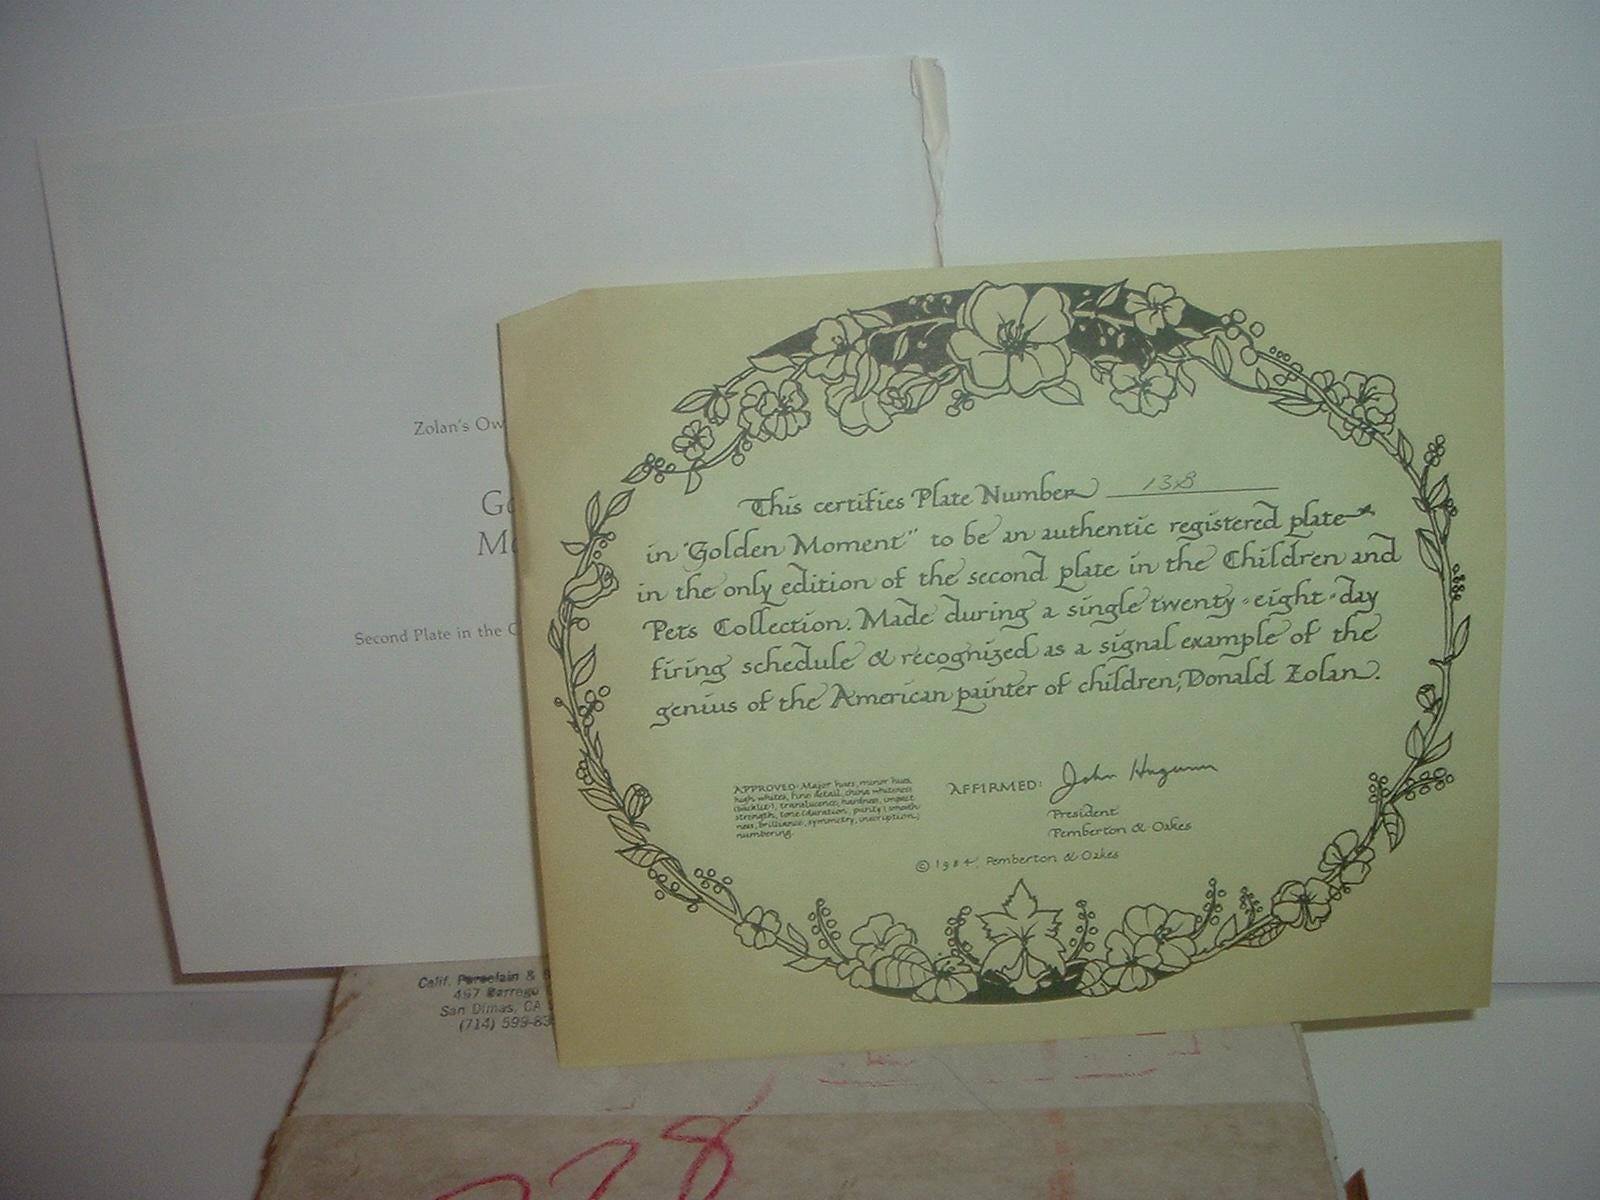 Zolan's Ow
Go
Mo
Second Plate in the C
This certifies Plate Number 138
in "Golden Moment" to be an authentic registered plate
in the only edition of the second plate in the Children and
Pets Collection. Made during a single twenty-eight-day
firing schedule & recognized as a signal example of the
genius of the American painter of children, Donald Zolan.
APPROVED: Major hues, minor hues,
high whites, fine detail, china whiteness
(backlit), translucence, hardness, impact
strength, tone (duration, purity) smooth-
ness, brilliance, symmetry, inscription,
numbering.
AFFIRMED: John Hugunin
President
Pemberton & Oakes
© 1984, Pemberton & Oakes
Calif. Porcelain &
497 Barrego
San Dimas, CA
(714) 599-83